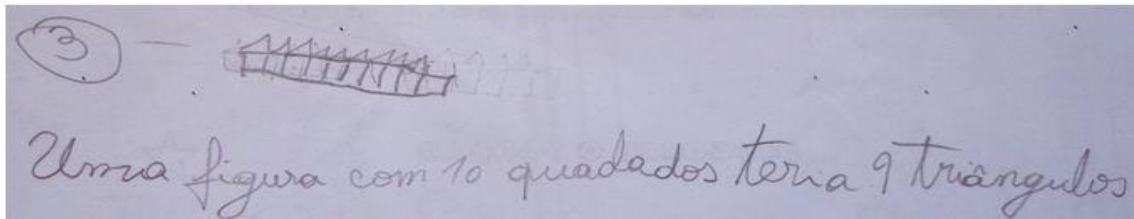 3 -
Uma figura com 10 quadados teria 9 triângulos